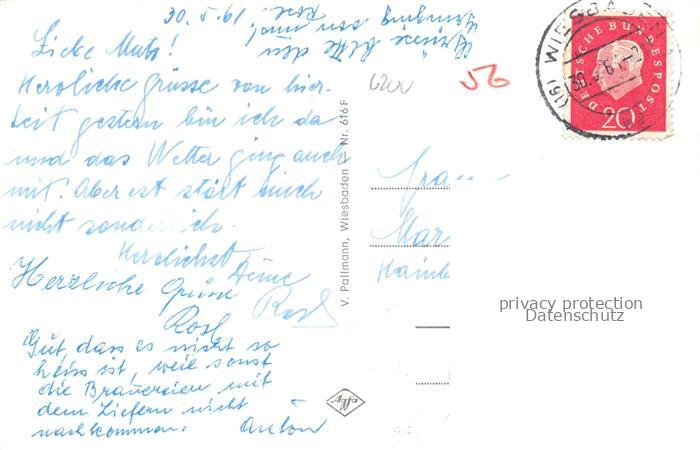 30.5.61
Grüsse bitte den
Liebe Mutz!
Herzliche Grüsse von hier.
Seit gestern bin ich da
und das Wetter ging auch
mit. Aber es stört mich
nicht sonderlich.
Herzlichst Deine
Rosl
Herzliche Grüsse
Rosl
Gut, dass es nicht so
heiss ist, weil sonst
die Brauereien mit
dem Liefern nicht
nachkommen. Anton
V. Pallmann, Wiesbaden Nr. 616F
6200
56
Frau
Mar
Hain
WIESBADEN
(16)
DEUTSCHE BUNDESPOST
20
privacy protection
Datenschutz